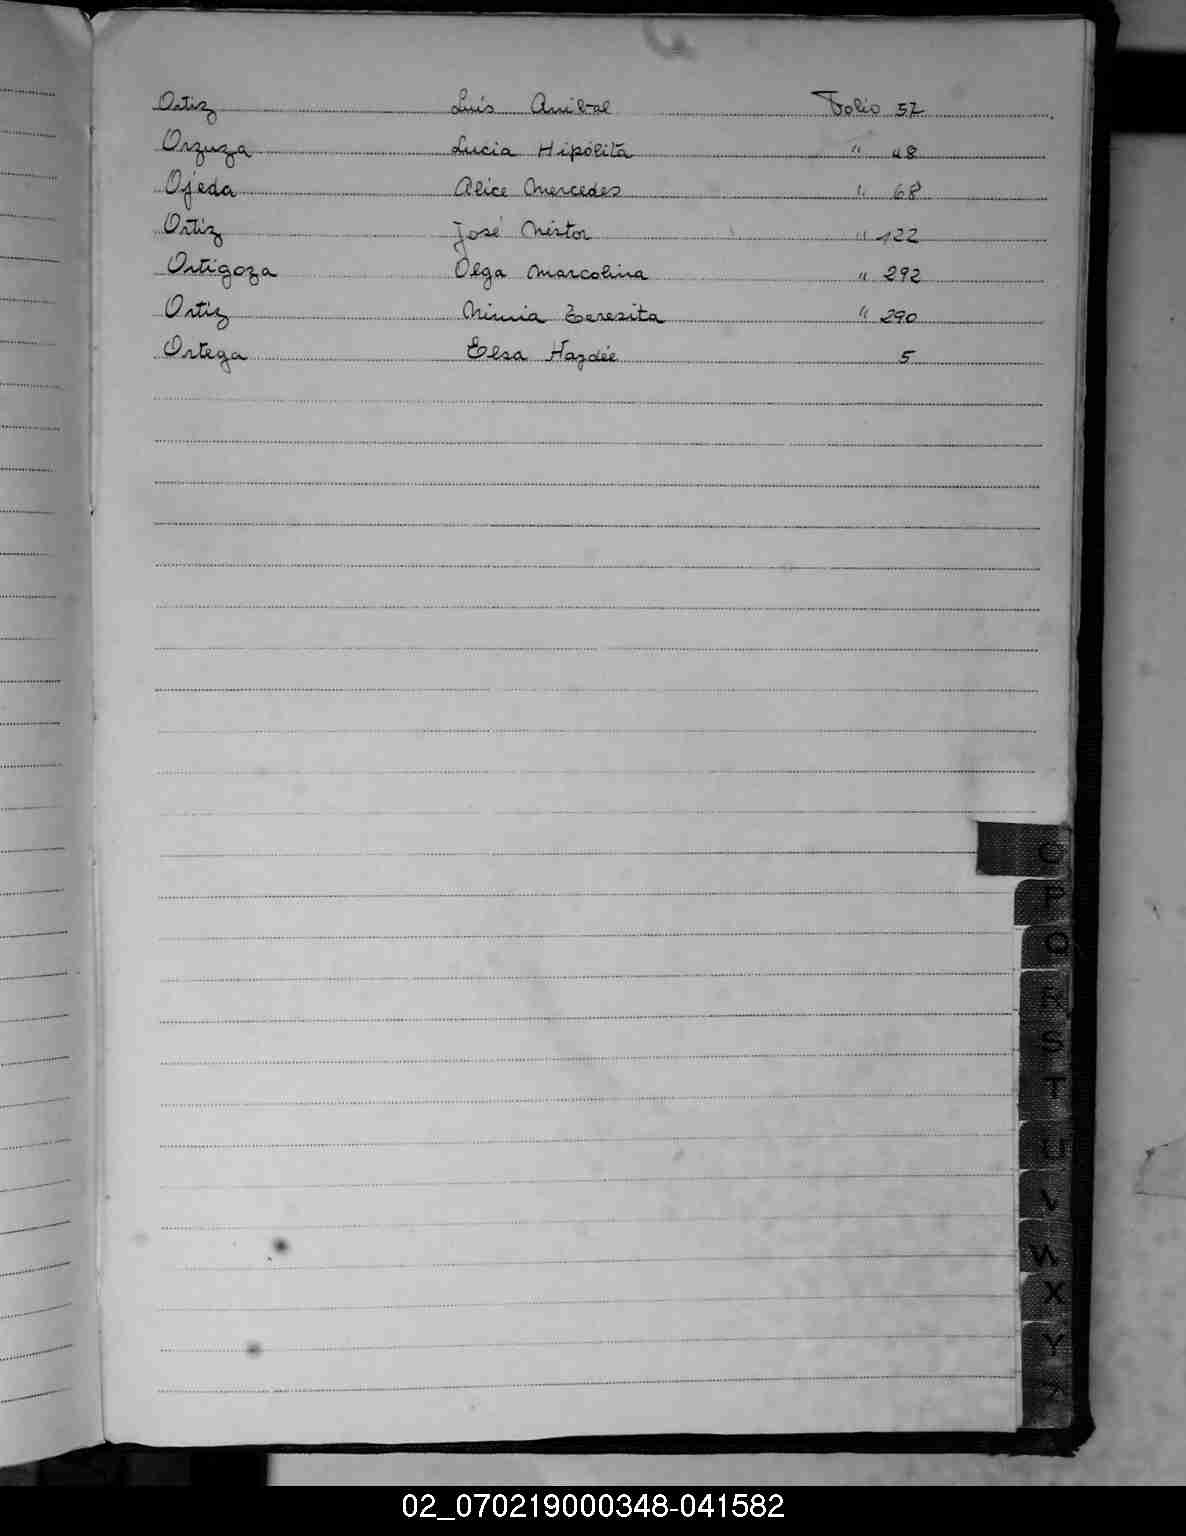 Ortiz Luis Anibal Folio 52
Orzuza Lucia Hipólita " 48
Ojeda Alice Mercedes " 68
Ortiz José Néstor " 122
Ortigoza Olga Marcolina " 292
Ortiz Nimia Teresita " 290
Ortega Elsa Haydée 5
O
P
Q
R
S
T
U
V
W
X
Y
Z
02_070219000348-041582